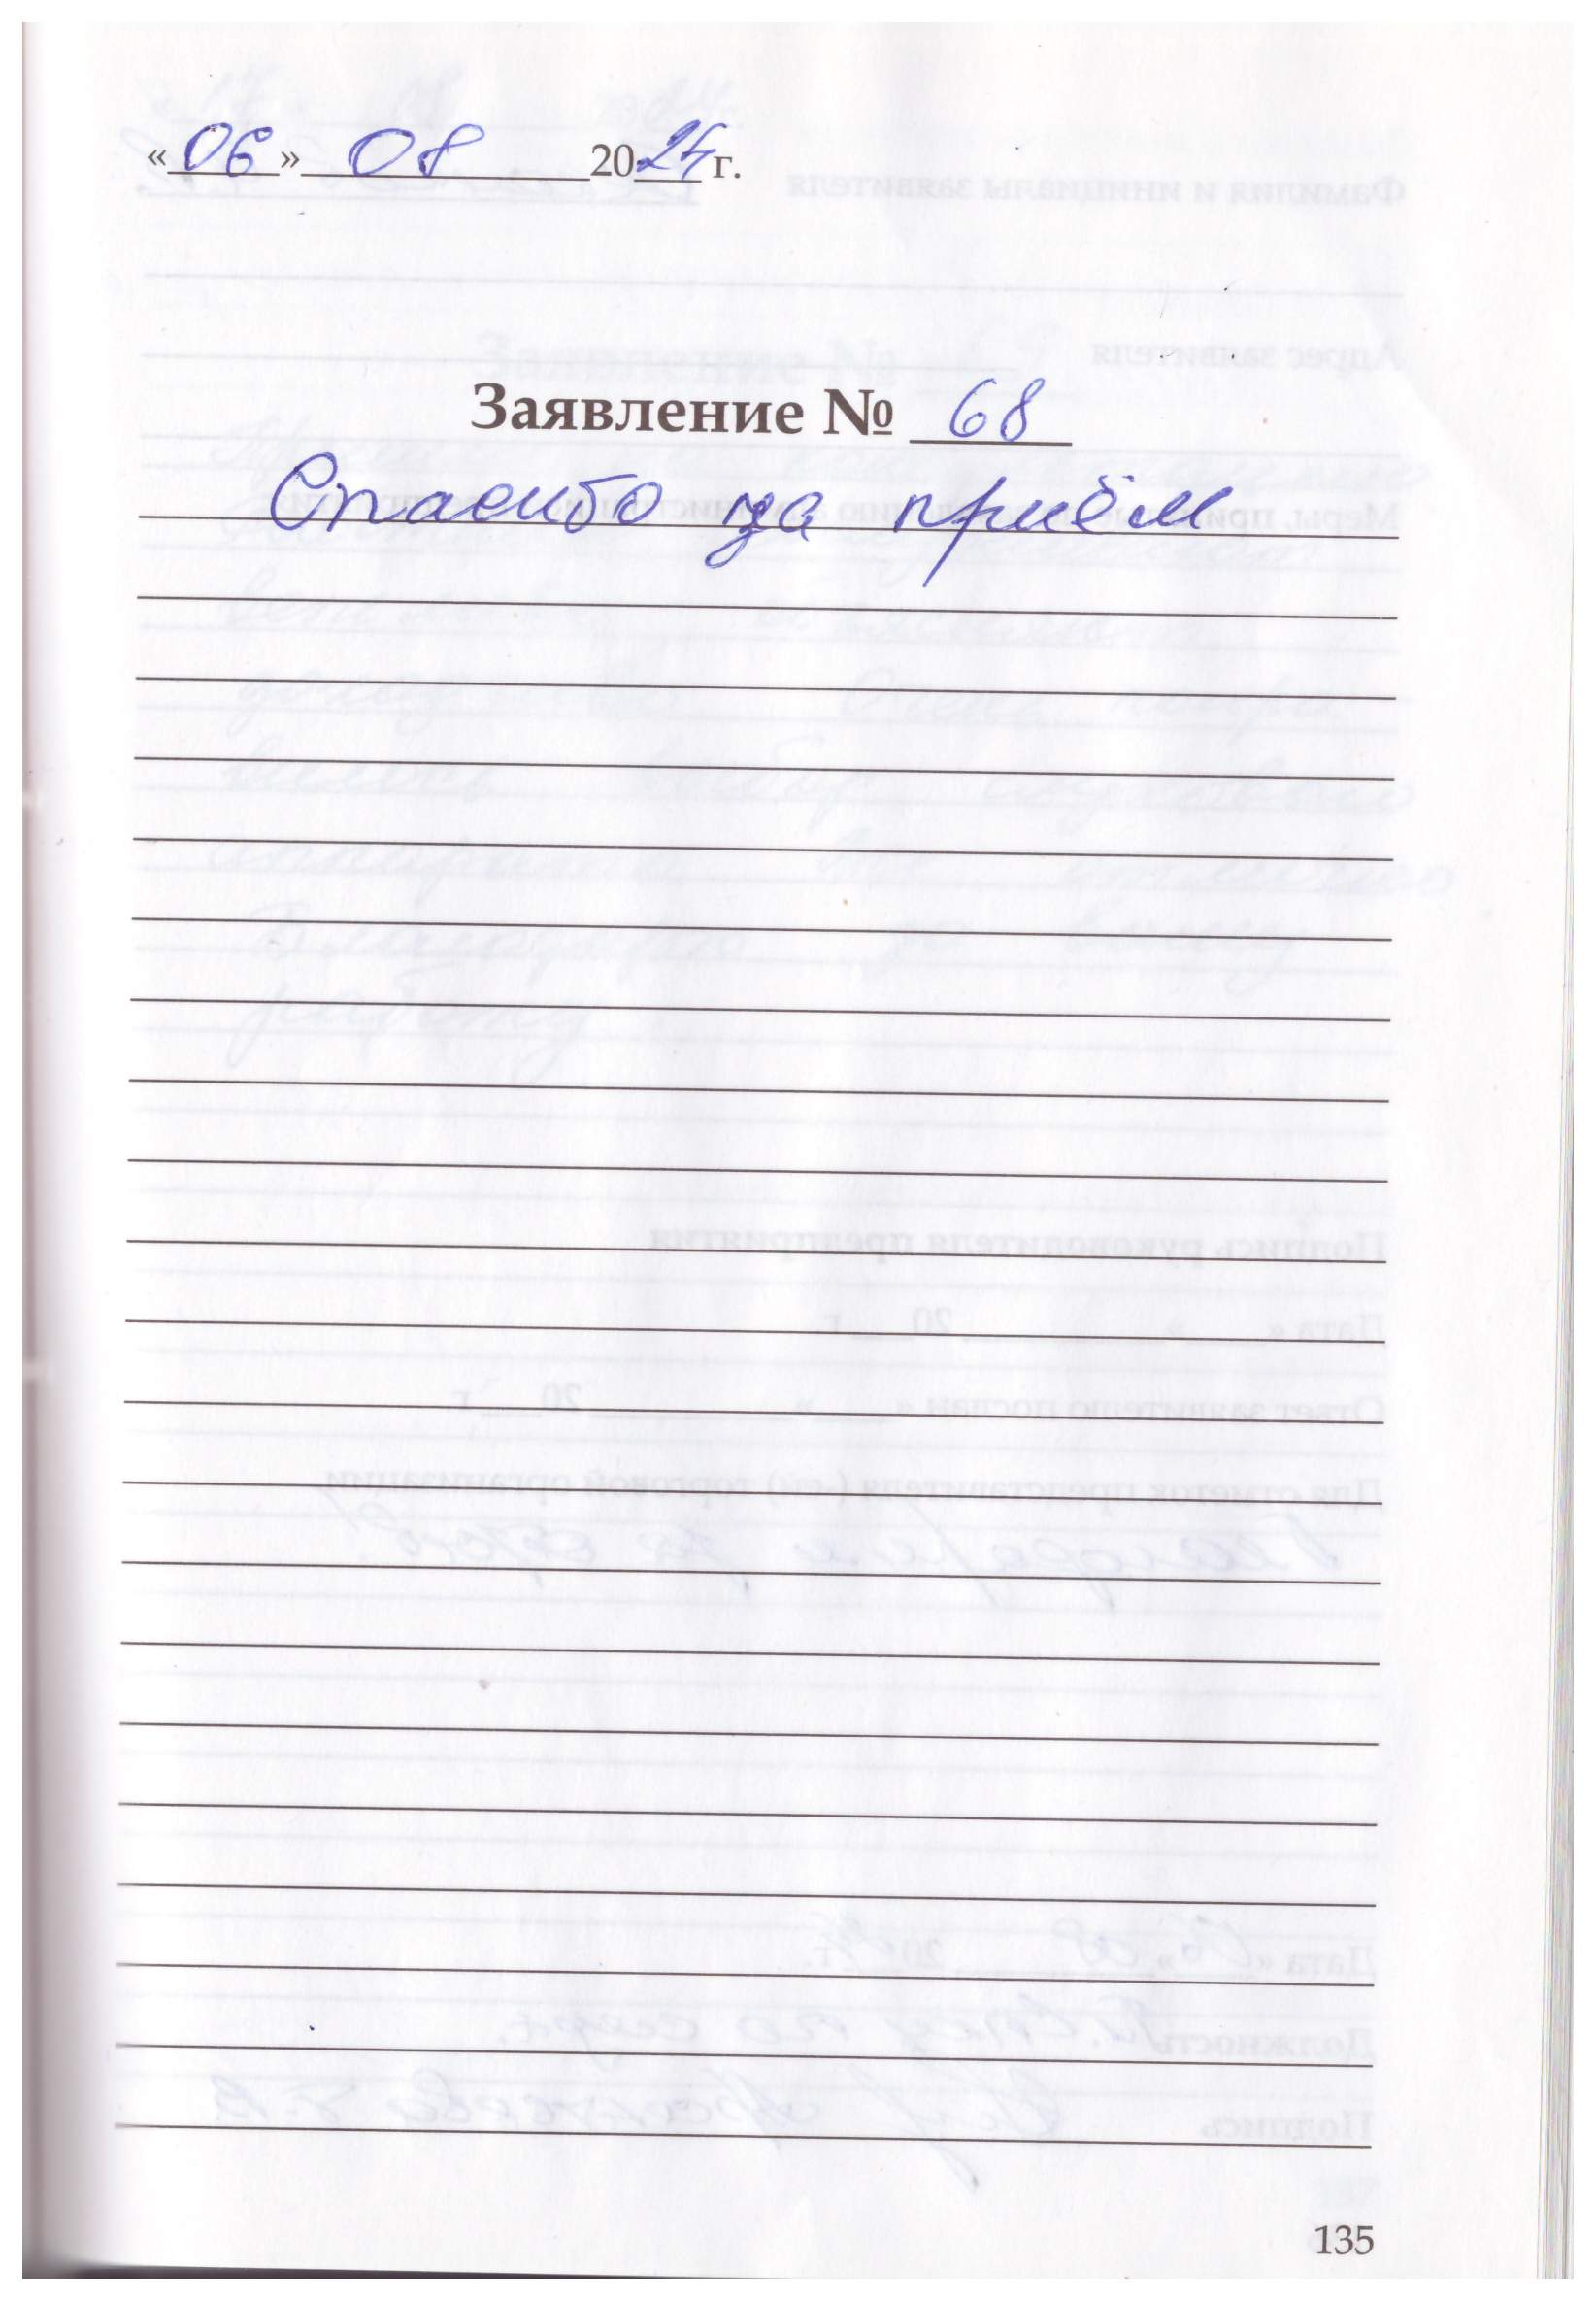 «06» 08 2024 г.
Заявление № 68
Спасибо за приём
135